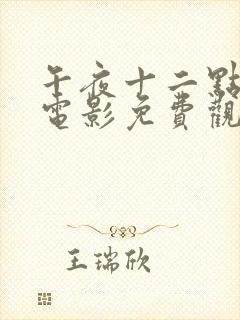 午夜十二點
電影免費觀
王瑞欣